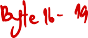 Byte 16- 19